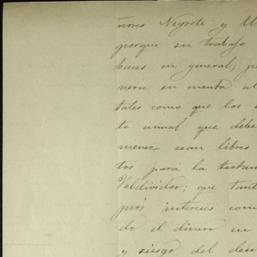 ñores Negrete y
porque su trabajo
hacer en general, p
nerse en cuenta al
tales como que los
to anual que debe
menor, sean libres
tos para la testam
Valdivielso; que tant
pios intereses com
do el dinero en
y riesgo del deu